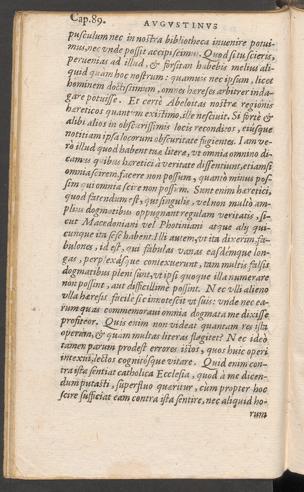 Cap.89.
AVGVSTINVS
pusculum nec in nostra bibliotheca inuenire potui-
mus, nec vnde possit accipi scimus. Quod si tu scieris,
peruenias ad illud, & forsitan habebis melius ali-
quid quam hoc nostrum: quamuis nec ipsum, licet
hominem doctissimum, omnes hæreses arbitrer inda-
gare potuisse. Et certè Abeloitas nostræ regionis
hæreticos quantum existimo, ille nesciuit. Si fortè &
alibi alios in obscurissimis locis reconditos, eiúsque
notitiam ipsa locorum obscuritate fugientes. Iam ve-
rò illud quod habent tuæ literæ, vt omnia omnino di-
camus quibus hæretici à veritate dissentiunt, etiamsi
omnia scirem, facere non possum, quantò minus pos-
sim qui omnia scire non possum. Sunt enim hæretici,
quod fatendum est, qui singulis, vel non multò am-
plius dogmatibus oppugnant regulam veritatis, si-
cut Macedoniani vel Photiniani atque alij qui-
cunque ita sese habent. Illi autem, vt ita dixerim, fa-
bulones, id est, qui fabulas vanas easdémque lon-
gas, perplexásque contexuerunt, tam multis falsis
dogmatibus pleni sunt, vt ipsi quoque illa numerare
non possint, aut difficillimè possint. Nec vlli alieno
vlla hæresis facilè sic innotescit vt suis: vnde nec ea-
rum quas commemoraui omnia dogmata me dixisse
profiteor. Quis enim non videat quantam res ista
operam, & quàm multas literas flagitet? Nec ideò
tamen parum prodest errores istos, quos huic operi
intexui, lectos cognitósque vitare. Quid enim con-
tra ista sentiat catholica Ecclesia, quod à me dicen-
dum putasti, superfluo quæritur, cùm propter hoc
scire sufficiat eam contra ista sentire, nec aliquid ho-
rum